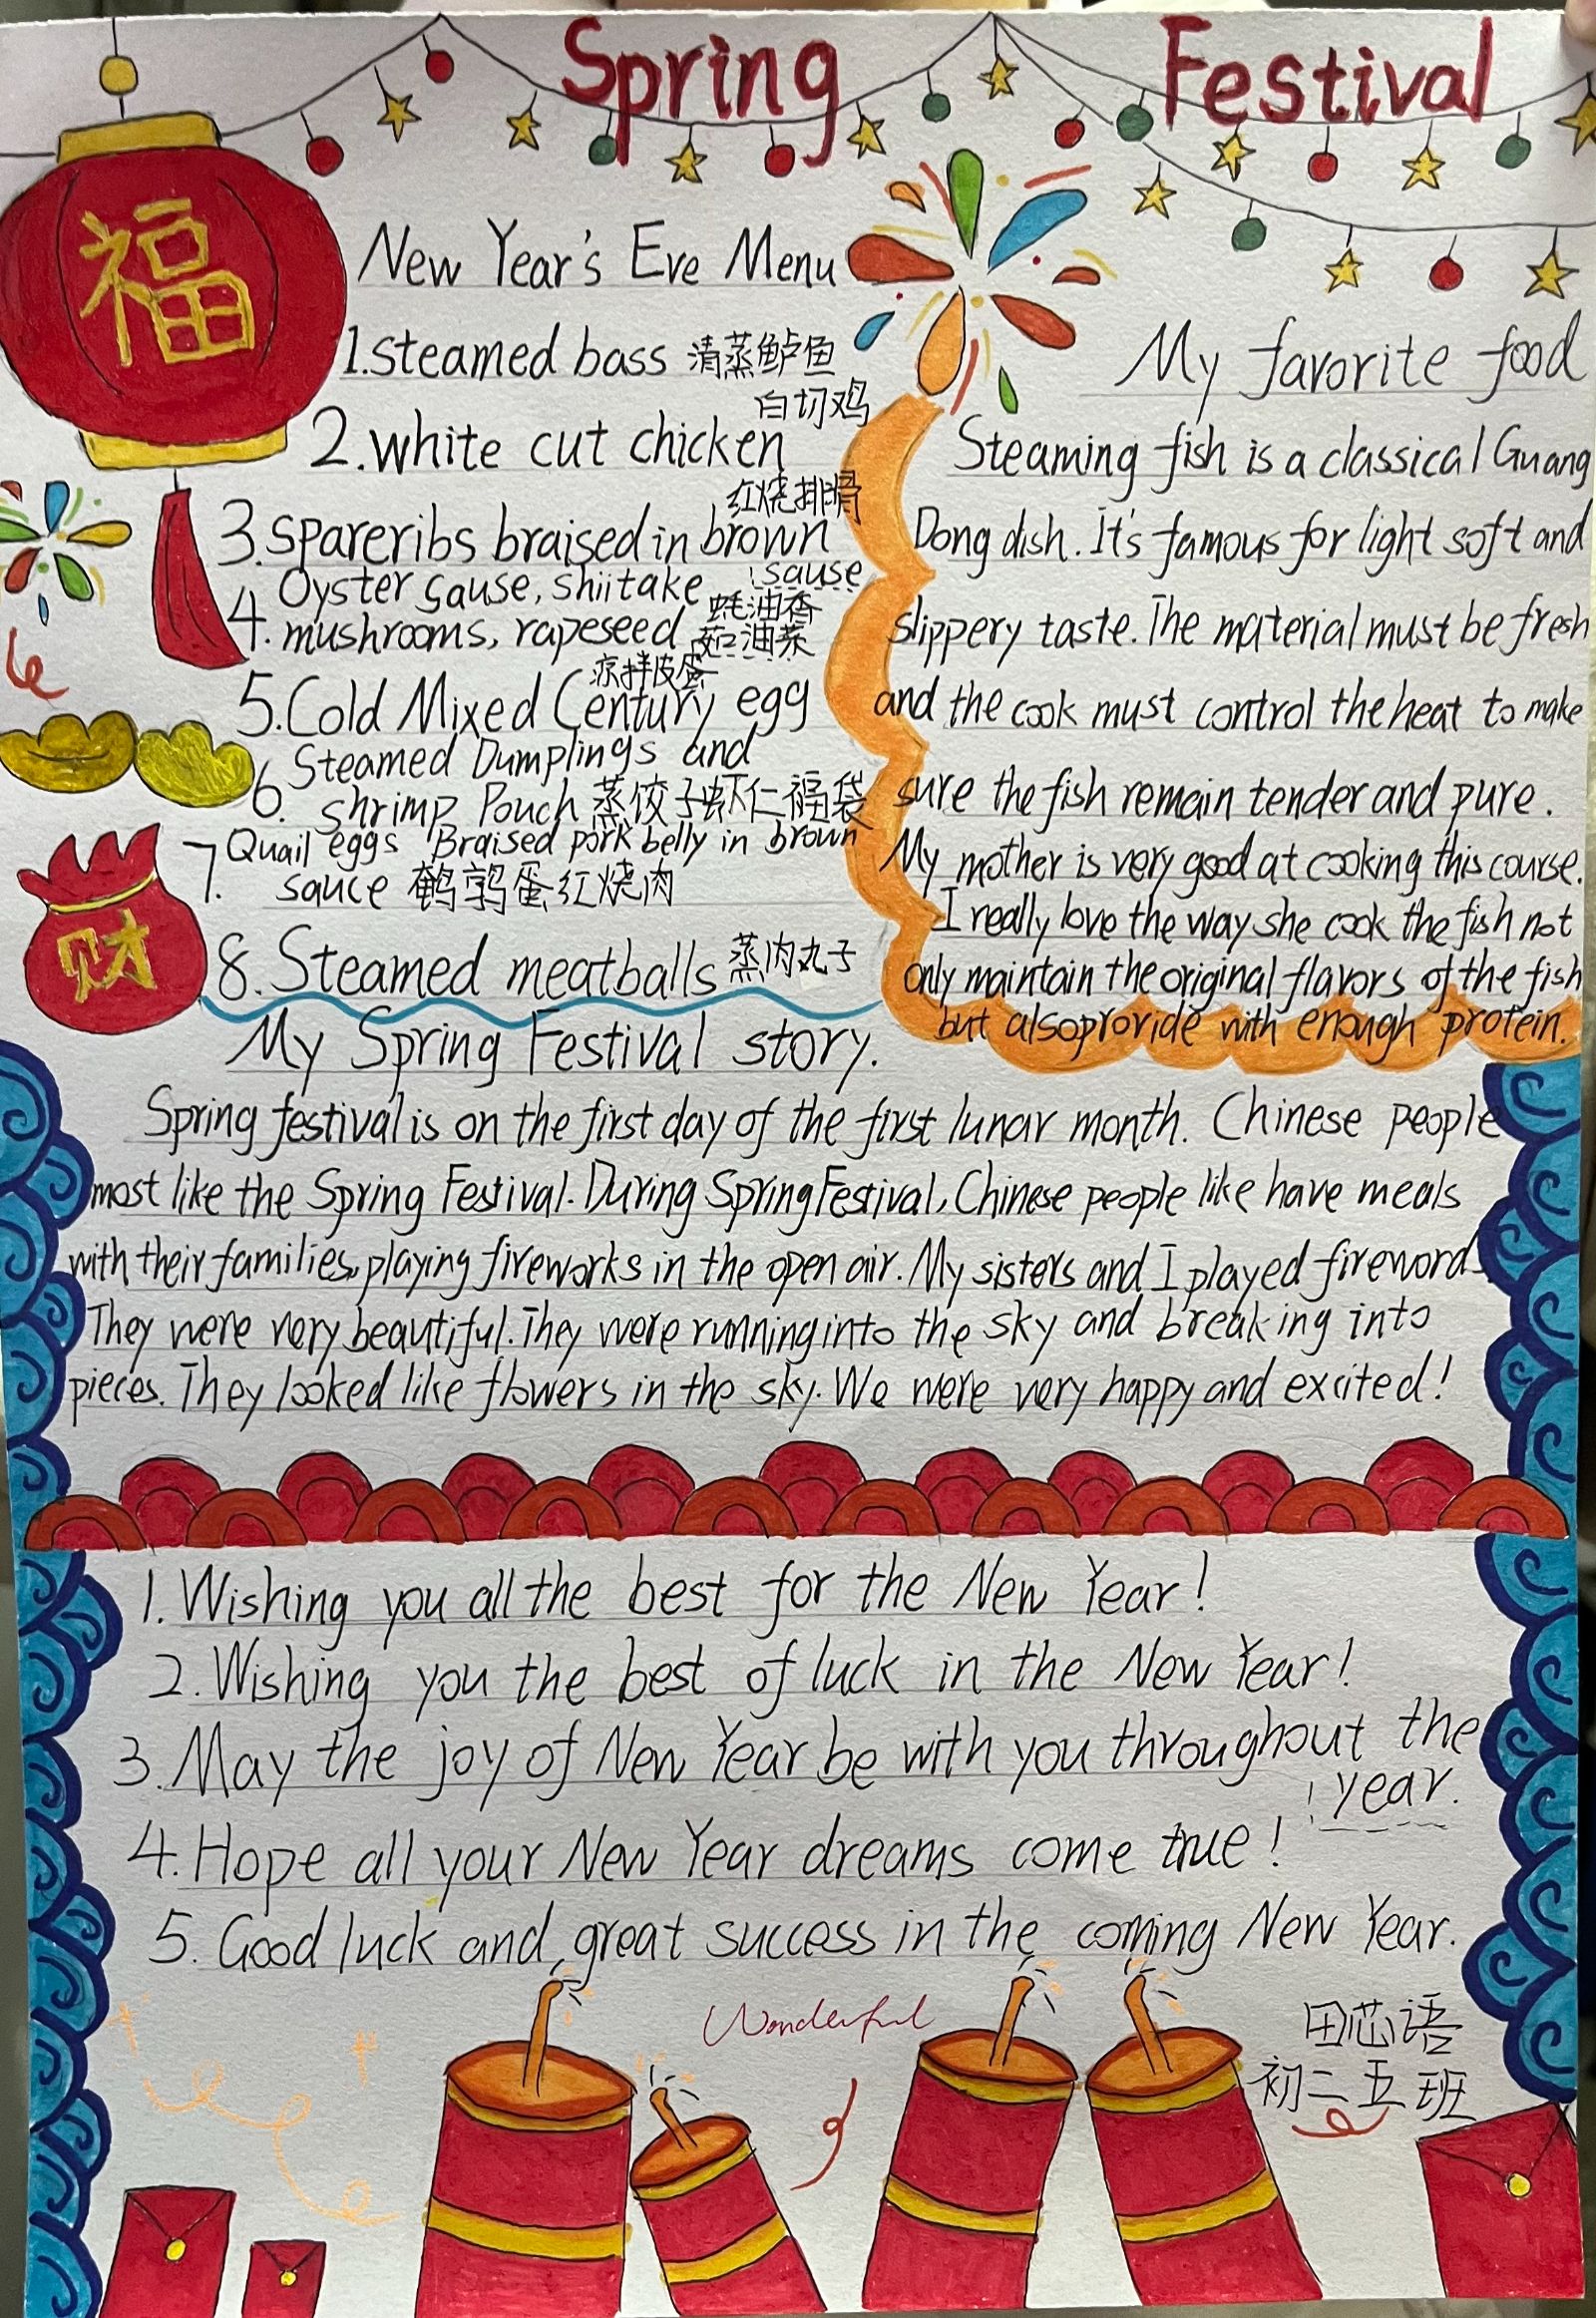 Spring Festival
福
New Year's Eve Menu
1.steamed bass 清蒸鲈鱼
白切鸡
2.white cut chicken
红烧排骨
3.spareribs braised in brown
sause
4. Oyster sause, shiitake
mushrooms, rapeseed 蚝油香
菇油菜
凉拌皮蛋
5.Cold Mixed Century egg
6. Steamed Dumplings and
shrimp Pouch 蒸饺子虾仁福袋
7. Quail eggs Braised pork belly in brown
sauce 鹌鹑蛋红烧肉
8.Steamed meatballs 蒸肉丸子
财
My favorite food
Steaming fish is a classical Guang
Dong dish. It's famous for light soft and
slippery taste. The material must be fresh
and the cook must control the heat to make
sure the fish remain tender and pure.
My mother is very good at cooking this course.
I really love the way she cook the fish not
only maintain the original flavors of the fish
but also provide with enough protein.
My Spring Festival story.
Spring festival is on the first day of the first lunar month. Chinese people
most like the Spring Festival. During Spring Festival, Chinese people like have meals
with their families, playing fireworks in the open air. My sisters and I played firewords
They were very beautiful. They were running into the sky and breaking into
pieces. They looked like flowers in the sky. We were very happy and excited!
1. Wishing you all the best for the New Year!
2. Wishing you the best of luck in the New Year!
3. May the joy of New Year be with you throughout the
year.
4. Hope all your New Year dreams come true!
5. Good luck and great success in the coming New Year.
Wonderful
田芯语
初二五班